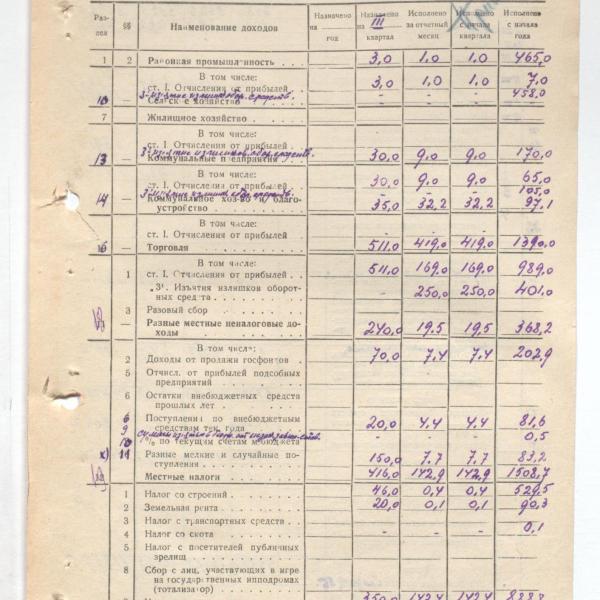 Раз-
дел §§ Наименование доходов Назначено на год Назначено на III квартал Исполнено за отчетный месяц Исполнено с начала квартала Исполнено с начала года
1 2 Районная промышленность 3,0 1,0 1,0 465,0
В том числе:
ст. I. Отчисления от прибылей 3,0 1,0 1,0 7,0
- - - 458,0
10 — Сельское хозяйство
7 Жилищное хозяйство
В том числе:
ст. I. Отчисления от прибылей
13 — Коммунальные предприятия 30,0 9,0 9,0 170,0
В том числе:
ст. I. Отчисления от прибылей 30,0 9,0 9,0 65,0
- - - 105,0
14 — Коммунальное хоз-во и благо-
устройство 35,0 32,2 32,2 97,1
В том числе:
ст. I. Отчисления от прибылей
— Торговля 511,0 419,0 419,0 1390,0
В том числе:
1 ст. I. Отчисления от прибылей 511,0 169,0 169,0 989,0
„ 3. Изъятия излишков оборот-
ных средств - 250,0 250,0 401,0
3 Разовый сбор
— Разные местные неналоговые до-
ходы 240,0 19,5 19,5 368,2
В том числе:
2 Доходы от продажи госфондов 70,0 7,4 7,4 202,9
5 Отчисл. от прибылей подсобных
предприятий
6 Остатки внебюджетных средств
прошлых лет
Поступления по внебюджетным
средствам тек. года 20,0 4,4 4,4 81,6
10 % по текущим счетам м/бюджета - - - 0,5
х) Разные мелкие и случайные по-
ступления 150,0 7,7 7,7 83,2
— Местные налоги 416,0 142,9 142,9 1508,7
1 Налог со строений 46,0 0,4 0,4 529,5
2 Земельная рента 20,0 0,1 0,1 90,3
3 Налог с транспортных средств - - - 0,1
4 Налог со скота
5 Налог с посетителей публичных
зрелищ
8 Сбор с лиц, участвующих в игре
на государственных ипподромах
(тотализатор)
350,0 142,4 142,4